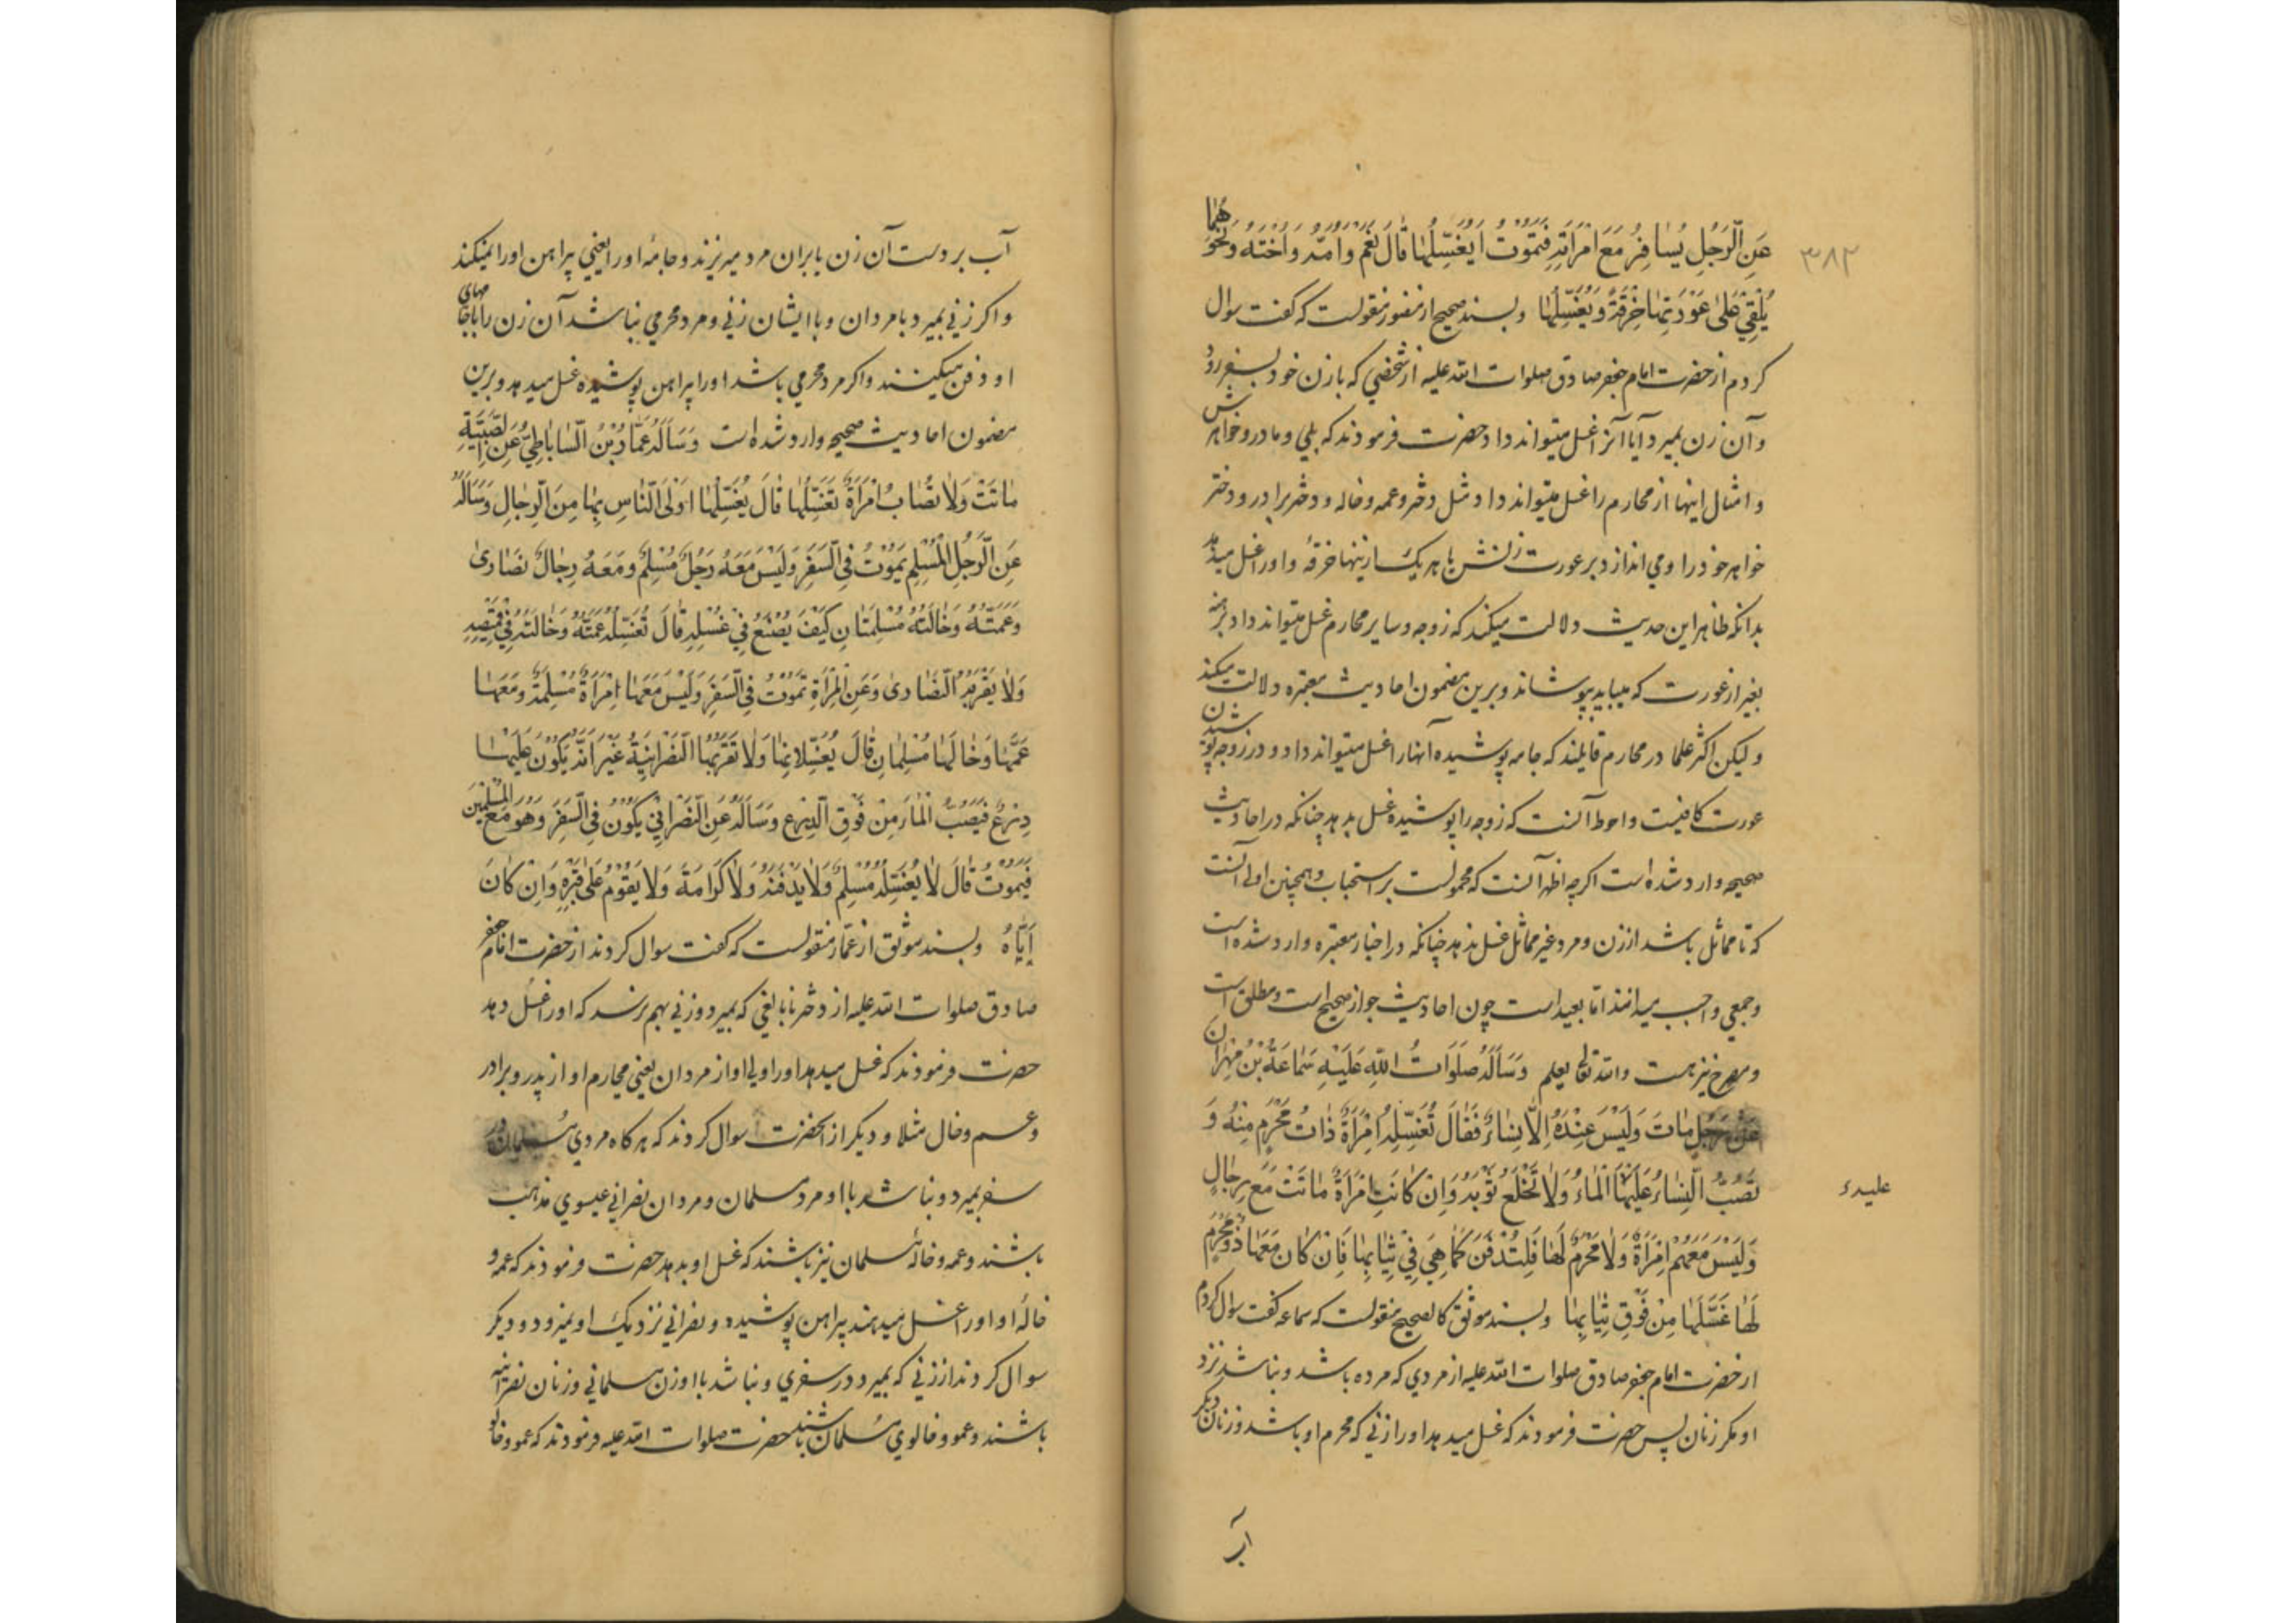 ۳۸۲
عَنِ الرَّجُلِ يُسَافِرُ مَعَ امْرَأَتِهِ فَتَمُوْتُ أَيُغَسِّلُهَا قَالَ نَعَمْ وَاُمَّهُ وَاُخْتَهُ وَنَحْوَ هُمَا
يُلْقِيْ عَلىٰ عَوْرَتِهَا خِرْقَةً وَيُغَسِّلُهَا وبسند صحيح از منصور منقولست که گفت سوال
کردم از حضرت امام جعفر صادق صلوات الله علیه از شخصي که با زن خود بسفر رود
و آن زن بمیرد آیا آنرا غسل میتواند داد حضرت فرمودند که بلي و مادر و خواهرش
و امثال اینها از محارم را غسل میتواند داد مثل دختر و عمه و خاله و دختر برادر و دختر
خواهر خود را و می اندازد بر عورت زنش با هر یک از ینها خرقهٔ و او را غسل میدهد
بدانکه ظاهر این حدیث دلالت میکند که زوجه و سایر محارم غسل میتواند داد برهنه
بغیر از عورت که میباید پوشاند و برین مضمون احادیث معتبره دلالت میکند
و لیکن اکثر علما در محارم قایلند که جامه پوشیده آنها را غسل میتواند داد و در زوجه پوشیدن
عورت کافیست و احوط آنست که زوجه را پوشیده غسل بدهد چنانکه در احادیث
صحیحه وارد شده است اگرچه اظهر آنست که محمولست بر استحباب و همچنین اولی آنست
که تا مماثل باشد از زن و مرد غیر مماثل غسل ندهد چنانکه در اخبار معتبره وارد شده است
و جمعي واجب میدانند اما بعید است چون احادیث جواز صحیح است و مطلق است
و صریح نیز هست والله تعالی یعلم وَسَأَلَهُ صَلَوَاتُ اللّٰهِ عَلَيْهِ سَمَاعَةُ بْنُ مِهْرَان
عَنْ رَجُلٍ مَاتَ وَلَيْسَ عِنْدَهُ اِلَّا نِسَاءٌ فَقَالَ تُغَسِّلُهُ امْرَأَةٌ ذَاتُ مَحْرَمٍ مِنْهُ وَ
تَصُبُّ النِّسَاءُ عَلَيْهَا الْمَاءَ وَلَا تَخْلَعُ ثَوْبَهُ وَاِنْ كَانَتِ امْرَأَةٌ مَاتَتْ مَعَ رِجَالٍ
علیهء
وَلَيْسَ مَعَهُمْ اِمْرَأَةٌ وَلَا مَحْرَمٌ لَهَا فَلْتُدْفَنْ كَمَا هِيَ فِيْ ثِيَابِهَا فَاِنْ كَانَ مَعَهَا ذُوْ مَحْرَمٍ
لَهَا غَسَّلَهَا مِنْ فَوْقِ ثِيَابِهَا وبسند موثق کالصحیح منقولست که سماعه گفت سوال کردم
از حضرت امام جعفر صادق صلوات الله علیه از مردي که مرده باشد و نباشد نزد
او مگر زنان پس حضرت فرمودند که غسل میدهد او را زني که محرم او باشد و زنان دیگر
آب
آب بر دست آن زن یا بران مرد میریزند و جامهٔ او را یعني پیراهن او را نمیکند
و اگر زني بمیرد با مردان و با ایشان زني و مرد محرمي نباشد آن زن را با جامهای
او دفن میکنند و اگر مرد محرمي باشد او را پیراهن پوشیده غسل میدهد و برین
مضمون احادیث صحیحه وارد شده است وَسَأَلَهُ عَمَّارُ بْنُ السَّابَاطِيُّ عَنِ الصَّبِيَّةِ
مَاتَتْ وَلَا تُصَابُ امْرَأَةٌ تُغَسِّلُهَا قَالَ يُغَسِّلُهَا اَوْلَى النَّاسِ بِهَا مِنَ الرِّجَالِ وَسَأَلَهُ
عَنِ الرَّجُلِ الْمُسْلِمِ يَمُوْتُ فِي السَّفَرِ وَلَيْسَ مَعَهُ رَجُلٌ مُسْلِمٌ وَمَعَهُ رِجَالٌ نَصَارىٰ
وَعَمَّتُهُ وَخَالَتُهُ مُسْلِمَتَانِ كَيْفَ يُصْنَعُ فِيْ غُسْلِهِ قَالَ تُغَسِّلُهُ عَمَّتُهُ وَخَالَتُهُ فِيْ قَمِيْصِهِ
وَلَا يَقْرَبُهُ النَّصَارىٰ وَعَنِ الْمَرْأَةِ تَمُوْتُ فِي السَّفَرِ وَلَيْسَ مَعَهَا اِمْرَأَةٌ مُسْلِمَةٌ وَمَعَهَا
عَمُّهَا وَخَالُهَا مُسْلِمَانِ قَالَ يُغَسِّلَانِهَا وَلَا تَقْرَبُهَا النَّصْرَانِيَّةُ غَيْرَ اَنَّهُ يَكُوْنُ عَلَيْهَا
دِرْعٌ فَيُصَبُّ الْمَاءُ مِنْ فَوْقِ الدِّرْعِ وَسَأَلَهُ عَنِ النَّصْرَانِيِّ يَكُوْنُ فِي السَّفَرِ وَهُوَ مَعَ الْمُسْلِمِيْنَ
فَيَمُوْتُ قَالَ لَا يُغَسِّلُهُ مُسْلِمٌ وَلَا يَدْفِنُهُ وَلَا كَرَامَةَ وَلَا يَقُوْمُ عَلىٰ قَبْرِهِ وَاِنْ كَانَ
اَبَاهُ وبسند موثق از عمار منقولست که گفت سوال کردند از حضرت امام جعفر
صادق صلوات الله علیه از دختر نابالغي که بمیرد و زني بهم نرسد که او را غسل دهد
حضرت فرمودند که غسل میدهد او را اولي او از مردان یعني محارم او از پدر و برادر
و عم و خال مثلا و دیگر از انحضرت سوال کردند که هرگاه مردي مسلمان در
سفر بمیرد و نباشد با او مرد مسلمان و مردان نصراني عیسوي مذهب
باشند و عمه و خالهٔ مسلمان نیز باشند که غسل او بدهد حضرت فرمودند که عمه و
خالهٔ او او را غسل میدهند پیراهن پوشیده و نصراني نزدیک او نمیرود و دیگر
سوال کردند از زني که بمیرد در سفري و نباشد با او زن مسلماني و زنان نصرانیه
باشند و عمو و خالوي مسلمان باشند حضرت صلوات الله علیه فرمودند که عمو و خالو